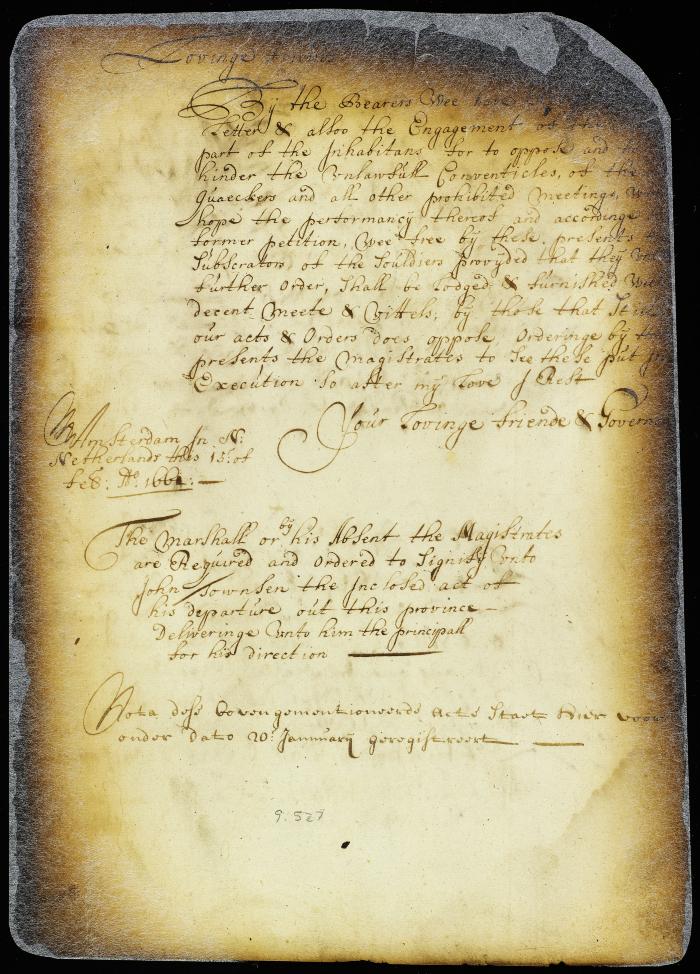 Lovinge friends
By the Bearers Wee have
Letter & allsoo the Engagement of the
part of the Inhabitans for to oppose and to
hinder the Vnlawfull Conventicles, of the
Quaeckers and all other prohibited meetinge, w
hope the performancy thereof and accordinge
former petition, wee free by these, presents t
Subscrators of the Souldiers provyded that they
further order, Shall be lodged & furnished wit
decent meete & Vittels, by those that
our acts & Orders does oppose, Orderinge by th
presents the magistrates to See these put In
Execution So after my Love I Rest
Your Lovinge friende & Govern
Amsterdam In N:
Netherlands this 15: of
feb: Ao. 166
The marshall or by his Absent the Magistrates
are Required and Ordered to Signify vnto
John Townsen the Inclosed act of
his depparture out this province –
Deliveringe vnto him the principall
for his direction ——
Nota dese bovengementioneerde Acte Staet hier voor
onder dato 20: Jannuarij geregistreert ——
9. 527